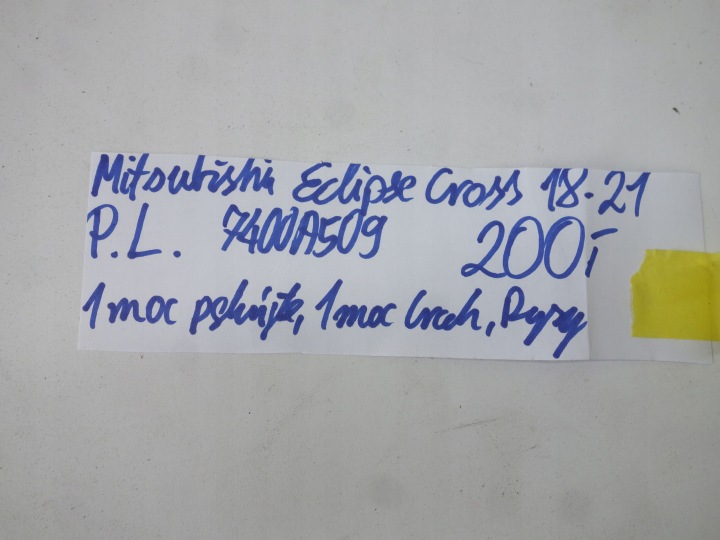 Mitsubishi Eclipse Cross 18-21
P.L. 7400A509 200,-
1 moc pęknięte, 1 moc brak, Rysy